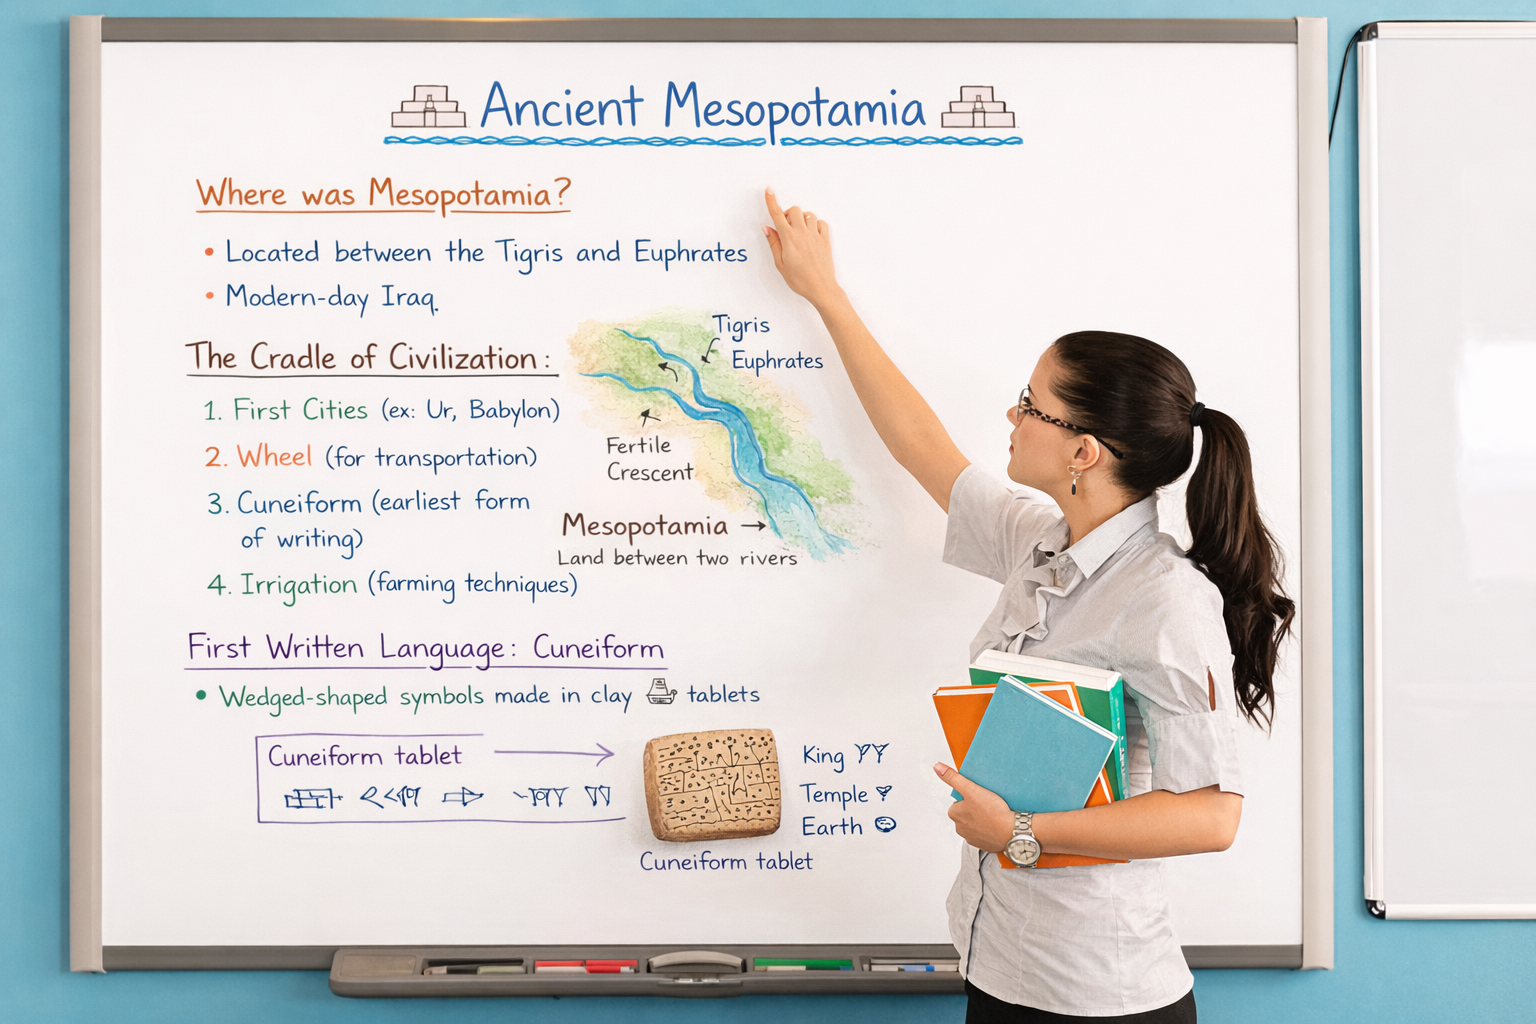 Ancient Mesopotamia
Where was Mesopotamia?
• Located between the Tigris and Euphrates
• Modern-day Iraq.
The Cradle of Civilization:
1. First Cities (ex: Ur, Babylon)
2. Wheel (for transportation)
3. Cuneiform (earliest form
of writing)
4. Irrigation (farming techniques)
Tigris
Euphrates
Fertile
Crescent
Mesopotamia →
Land between two rivers
First Written Language: Cuneiform
• Wedged-shaped symbols made in clay tablets
Cuneiform tablet
King
Temple
Earth
Cuneiform tablet